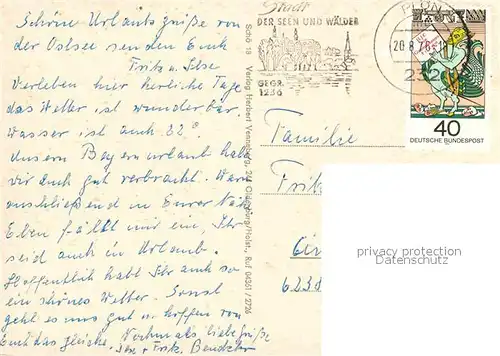 Schöne Urlaubsgrüße von
der Ostsee senden Euch
Fritz u. Ilse
Verleben hier herliche Tage
das Wetter ist wunderbar
Wasser ist auch 22°
Unsern Bayernurlaub hab
wir auch gut verbracht. Waren
anschließend in Eurer
Eben fällt mir ein, Ihr
seid auch in Urlaub.
Hoffentlich habt Ihr auch so
ein schönes Wetter. Sonst
geht es uns gut u. hoffen von
Euch das gleiche. Nochmals liebe Grüße
Ilse + Fritz
Schö 18 Verlag Herbert Venneberg, 244 Oldenburg/Holst., Ruf 04361 / 2726
Stadt
DER SEEN UND WÄLDER
GEGR.
1236
PLÖN
20.8.76
232
40
DEUTSCHE BUNDESPOST
Familie
Fritz
6238
privacy protection
Datenschutz